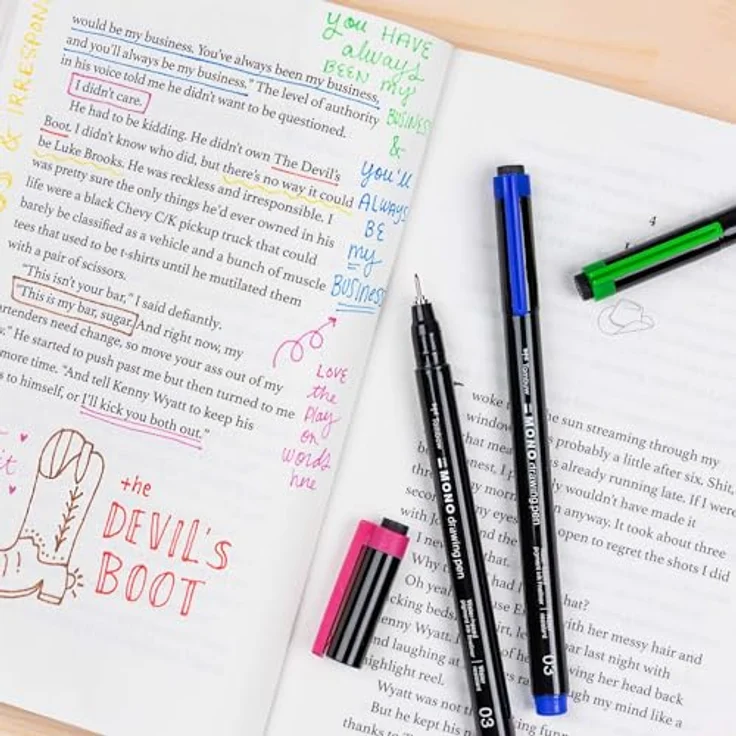 would be my business. You've always been my business,
and you'll always be my business." The level of authority
in his voice told me he didn't want to be questioned.
I didn't care.
He had to be kidding. He didn't own The Devil's
Boot. I didn't know who did, but there's no way it could
be Luke Brooks. He was reckless and irresponsible. I
was pretty sure the only things he'd ever owned in his
life were a black Chevy C/K pickup truck that could
barely be classified as a vehicle and a bunch of muscle
tees that used to be t-shirts until he mutilated them
with a pair of scissors.
"This isn't your bar," I said defiantly.
"This is my bar, sugar. And right now, my
artenders need change, so move your ass out of my
." He started to push past me but then turned to me
more time. "And tell Kenny Wyatt to keep his
s to himself, or I'll kick you both out."
& IRRESPON
you HAVE
always
BEEN my
BUSINESS
&
you'll
ALWAYS
BE
my
BUSINESS
LOVE
the
play
on
words
here
it
the
DEVIL'S
BOOT
4
woke
the sun streaming through my
window
probably a little after six. Shit,
that mea
as already running late. If I were
nest, I p
bly wouldn't have made it
my morn
anyway. It took about three
secon
my eyes
open to regret the shots I did
with J
I nev
that.
Why
had
hat?
Oh yea
use E
with her messy hair and
cking beds
irt, le
bar last night with
enny Wyatt. I
ving her head back
and laughing at
es ra
ugh my mind like a
highlight reel.
Wyatt was not
But he kept his
thanks to
Tombow
MONO drawing pen
03
Tombow
MONO drawing pen
03